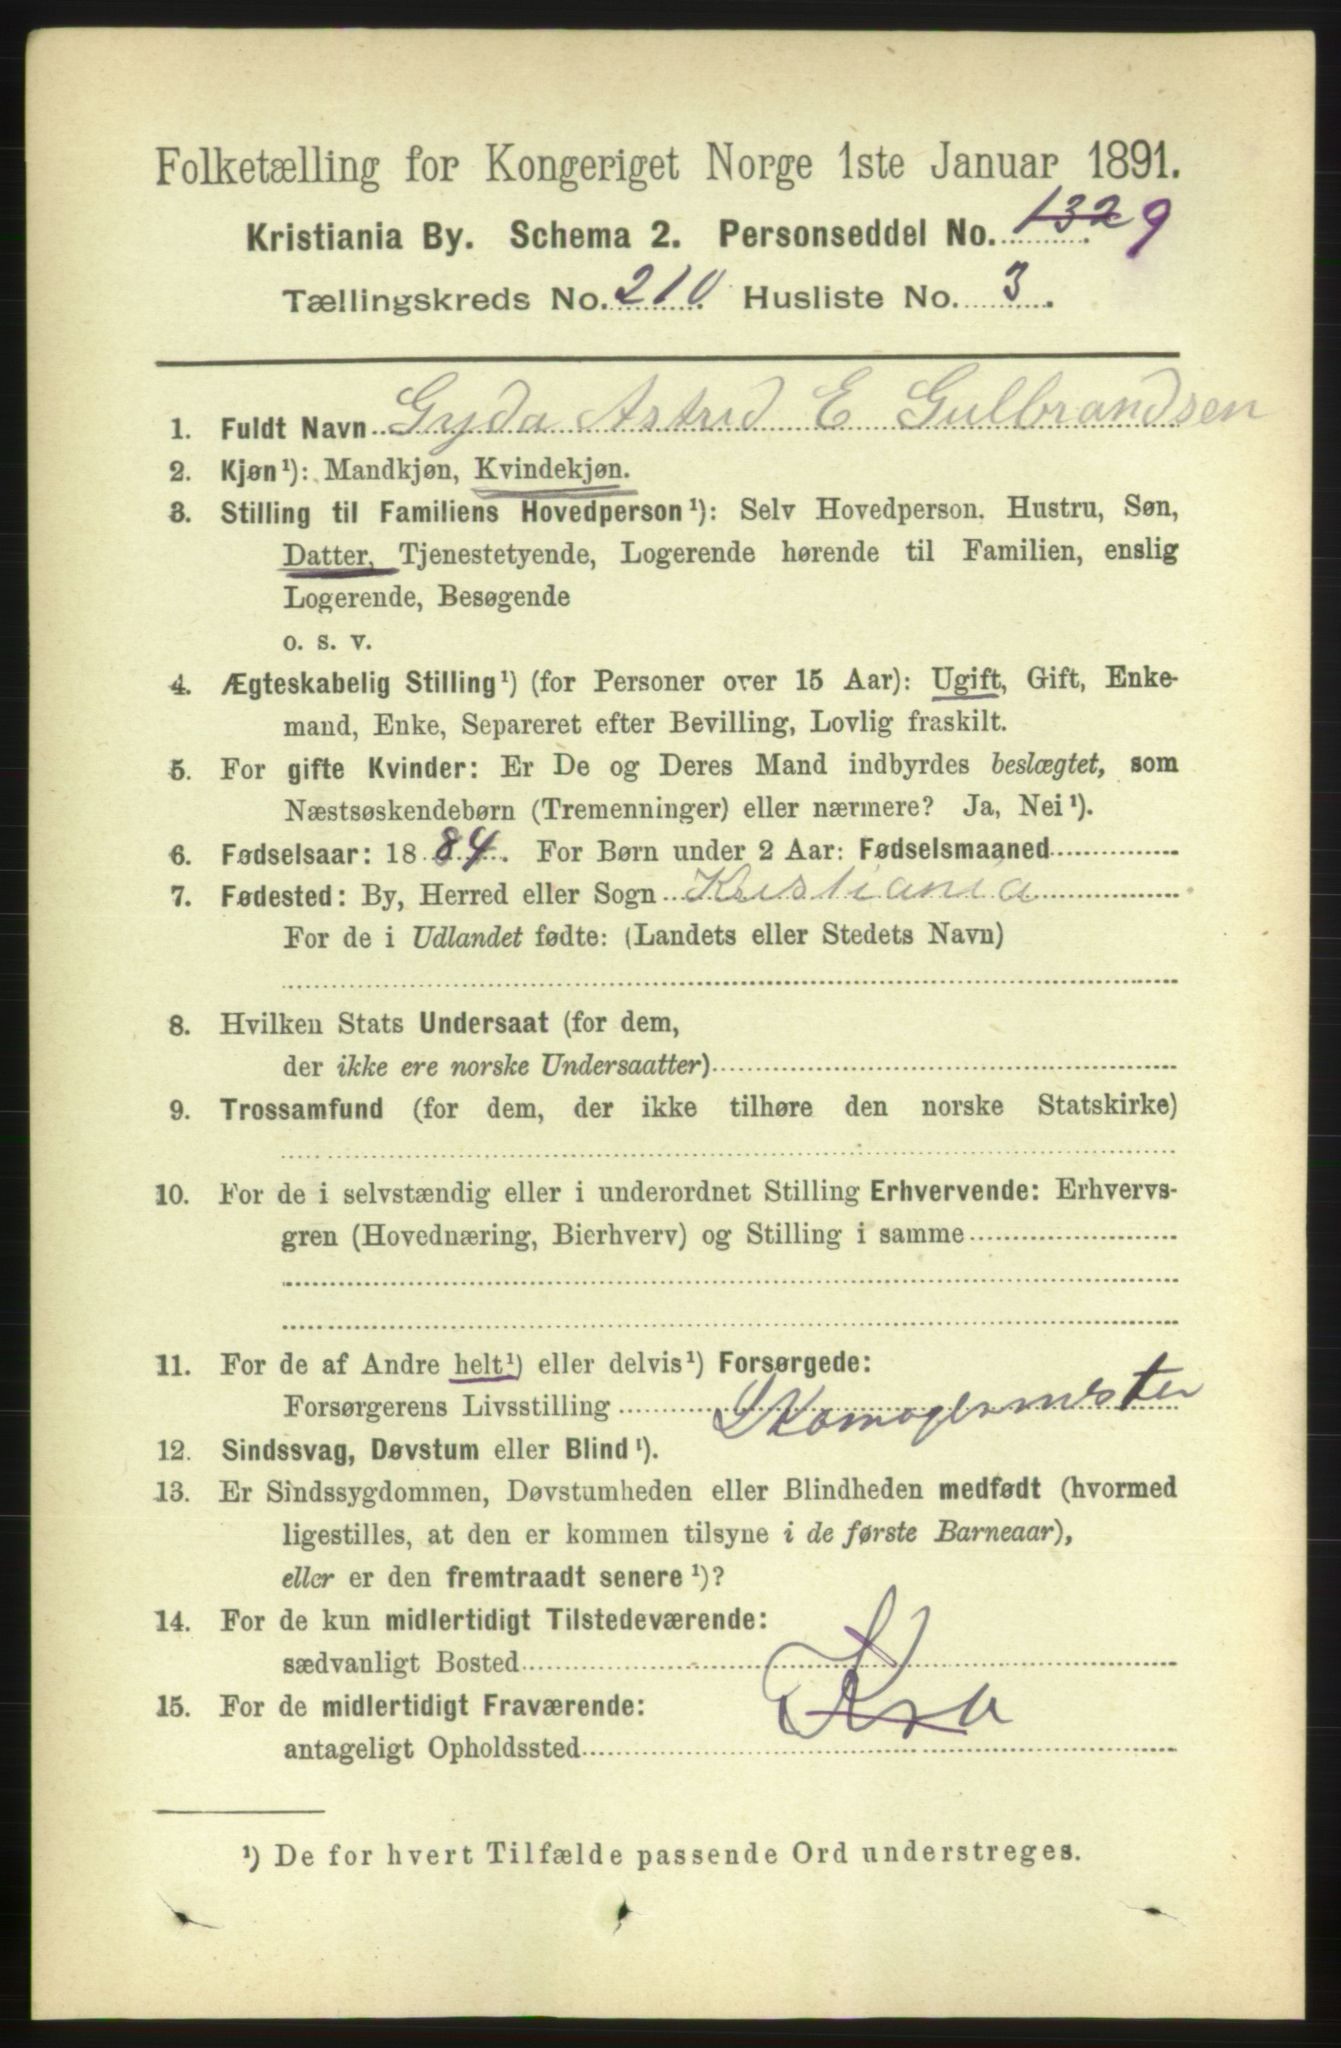 Folketælling for Kongeriget Norge 1ste Januar 1891.
Kristiania By. Schema 2. Personseddel No. 132 9
Tællingskreds No. 210 Husliste No. 3.
1. Fuldt Navn Gyda Astrid E Gulbrandsen
2. Kjøn¹): Mandkjøn, Kvindekjøn.
3. Stilling til Familiens Hovedperson¹): Selv Hovedperson, Hustru, Søn,
Datter, Tjenestetyende, Logerende hørende til Familien, enslig
Logerende, Besøgende
o. s. v.
4. Ægteskabelig Stilling¹) (for Personer over 15 Aar): Ugift, Gift, Enke-
mand, Enke, Separeret efter Bevilling, Lovlig fraskilt.
5. For gifte Kvinder: Er De og Deres Mand indbyrdes beslægtet, som
Næstsøskendebørn (Tremenninger) eller nærmere? Ja, Nei¹).
6. Fødselsaar: 1884. For Børn under 2 Aar: Fødselsmaaned
7. Fødested: By, Herred eller Sogn Kristiania
For de i Udlandet fødte: (Landets eller Stedets Navn)
8. Hvilken Stats Undersaat (for dem,
der ikke ere norske Undersaatter)
9. Trossamfund (for dem, der ikke tilhøre den norske Statskirke)
10. For de i selvstændig eller i underordnet Stilling Erhvervende: Erhvervs-
gren (Hovednæring, Bierhverv) og Stilling i samme
11. For de af Andre helt¹) eller delvis¹) Forsørgede:
Forsørgerens Livsstilling Skomagermester
12. Sindssvag, Døvstum eller Blind¹).
13. Er Sindssygdommen, Døvstumheden eller Blindheden medfødt (hvormed
ligestilles, at den er kommen tilsyne i de første Barneaar),
eller er den fremtraadt senere¹)?
14. For de kun midlertidigt Tilstedeværende:
sædvanligt Bosted
15. For de midlertidigt Fraværende:
antageligt Opholdssted Kra
¹) De for hvert Tilfælde passende Ord understreges.